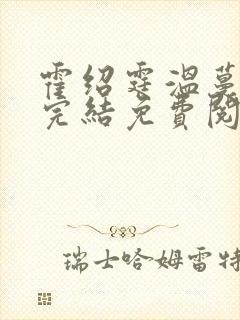 霍绍霆温蔓
完结免费阅
瑞士哈姆雷特